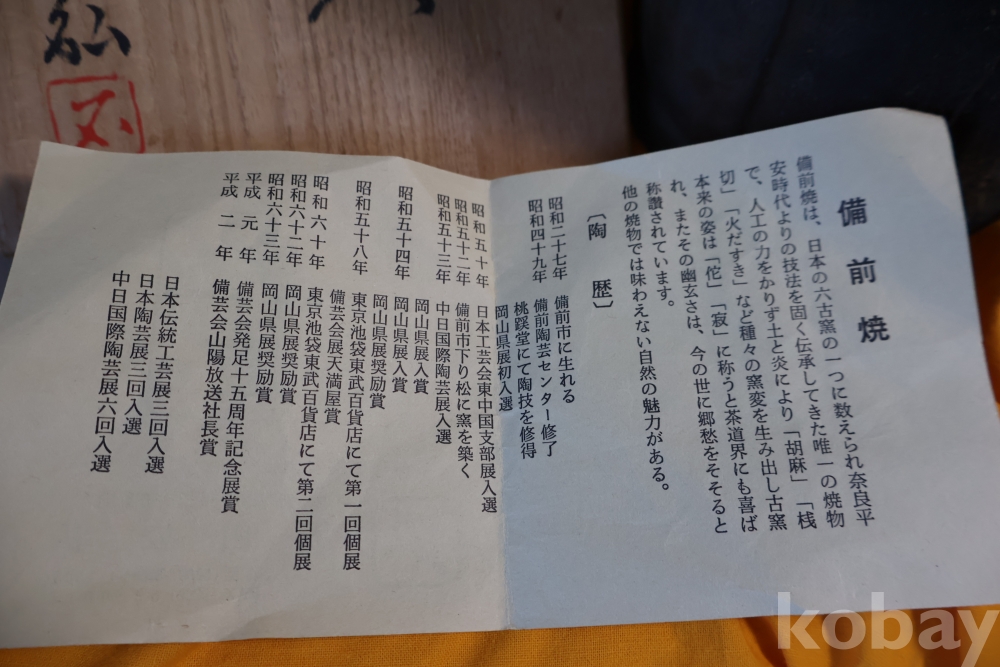 備前焼
備前焼は、日本の六古窯の一つに数えられ奈良平
安時代よりの技法を固く伝承してきた唯一の焼物
で、人工の力をかりず土と炎により「胡麻」「桟
切」「火だすき」など種々の窯変を生み出し古窯
本来の姿は「侘」「寂」に称うと茶道界にも喜ば
れ、またその幽玄さは、今の世に郷愁をそそると
称讃されています。
他の焼物では味わえない自然の魅力がある。
〔陶歴〕
昭和二十七年 備前市に生れる
昭和四十九年 備前陶芸センター修了
桃蹊堂にて陶技を修得
岡山県展初入選
昭和五十年 日本工芸会東中国支部展入選
昭和五十二年 備前市下り松に窯を築く
昭和五十三年 中日国際陶芸展入選
岡山県展入賞
昭和五十四年 岡山県展入賞
岡山県展奨励賞
昭和五十八年 東京池袋東武百貨店にて第一回個展
備芸会展天満屋賞
昭和六十年 東京池袋東武百貨店にて第二回個展
昭和六十二年 岡山県展奨励賞
昭和六十三年 岡山県展奨励賞
平成元年 備芸会発足十五周年記念展賞
平成二年 備芸会山陽放送社長賞
日本伝統工芸展三回入選
日本陶芸展三回入選
中日国際陶芸展六回入選
kobay